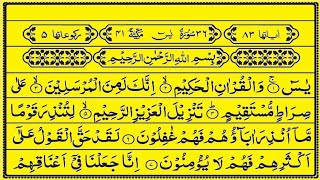 اٰیاتها ٨٣ ٣٦ سُوْرَةُ یٰسٓ مَکِّیَّةٌ ٤١ رکوعاتها ٥
بِسْمِ اللّٰهِ الرَّحْمٰنِ الرَّحِیْمِ
یٰسٓ ۚ وَالْقُرْاٰنِ الْحَکِیْمِ ۙ اِنَّکَ لَمِنَ الْمُرْسَلِیْنَ ۙ عَلٰی
صِرَاطٍ مُّسْتَقِیْمٍ ؕ تَنْزِیْلَ الْعَزِیْزِ الرَّحِیْمِ ۙ لِتُنْذِرَ قَوْمًا
مَّاۤ اُنْذِرَ اٰبَآؤُهُمْ فَهُمْ غٰفِلُوْنَ لَقَدْ حَقَّ الْقَوْلُ عَلٰۤی
اَکْثَرِهِمْ فَهُمْ لَا یُؤْمِنُوْنَ اِنَّا جَعَلْنَا فِیْۤ اَعْنَاقِهِمْ